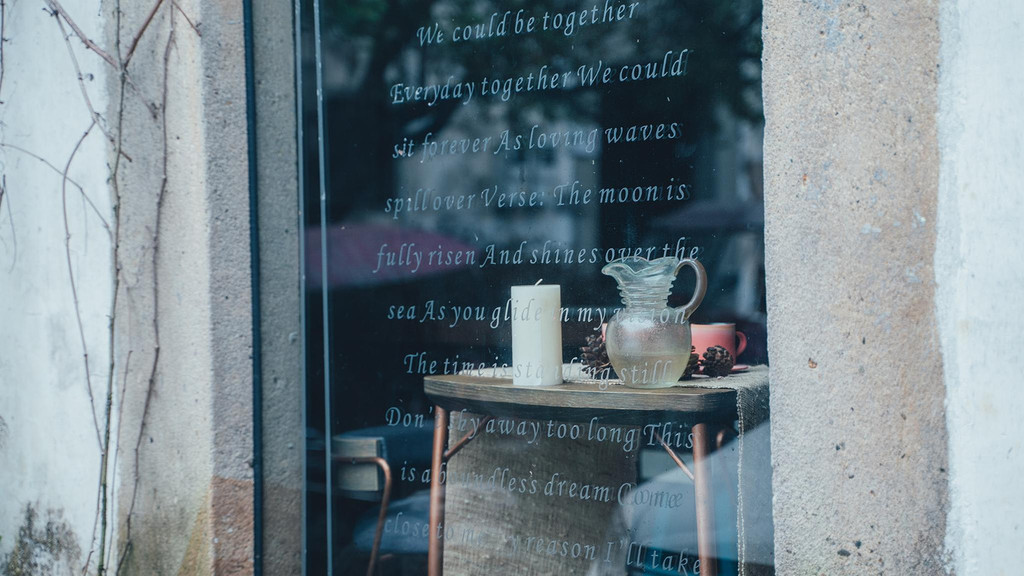 We could be together
Everyday together We could
sit forever As loving waves
spill over Verse: The moon is
fully risen And shines over the
sea As you glide in my vision
The time is standing still
Don' away too long This
is a dream
close to me reason I'll take